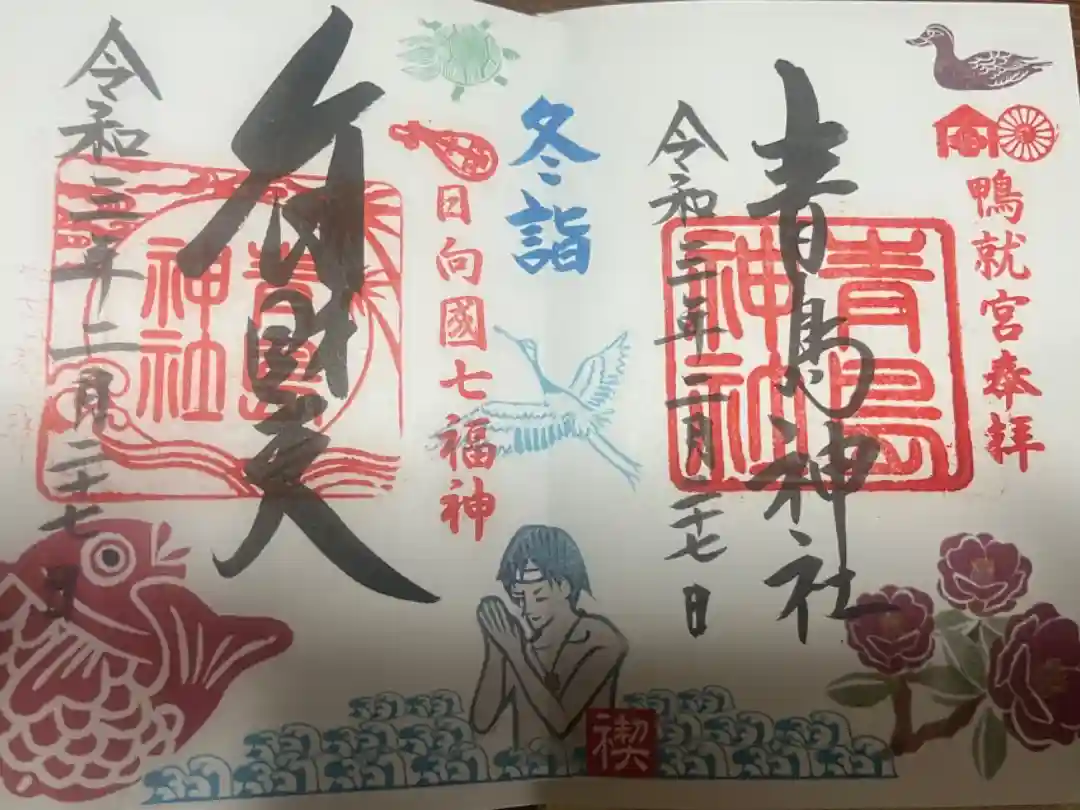 鴨就宮奉拝
青島神社
青島
神社
令和三年二月二十七日
冬詣
禊
日向國七福神
弁財天
青島
神社
令和三年二月二十七日